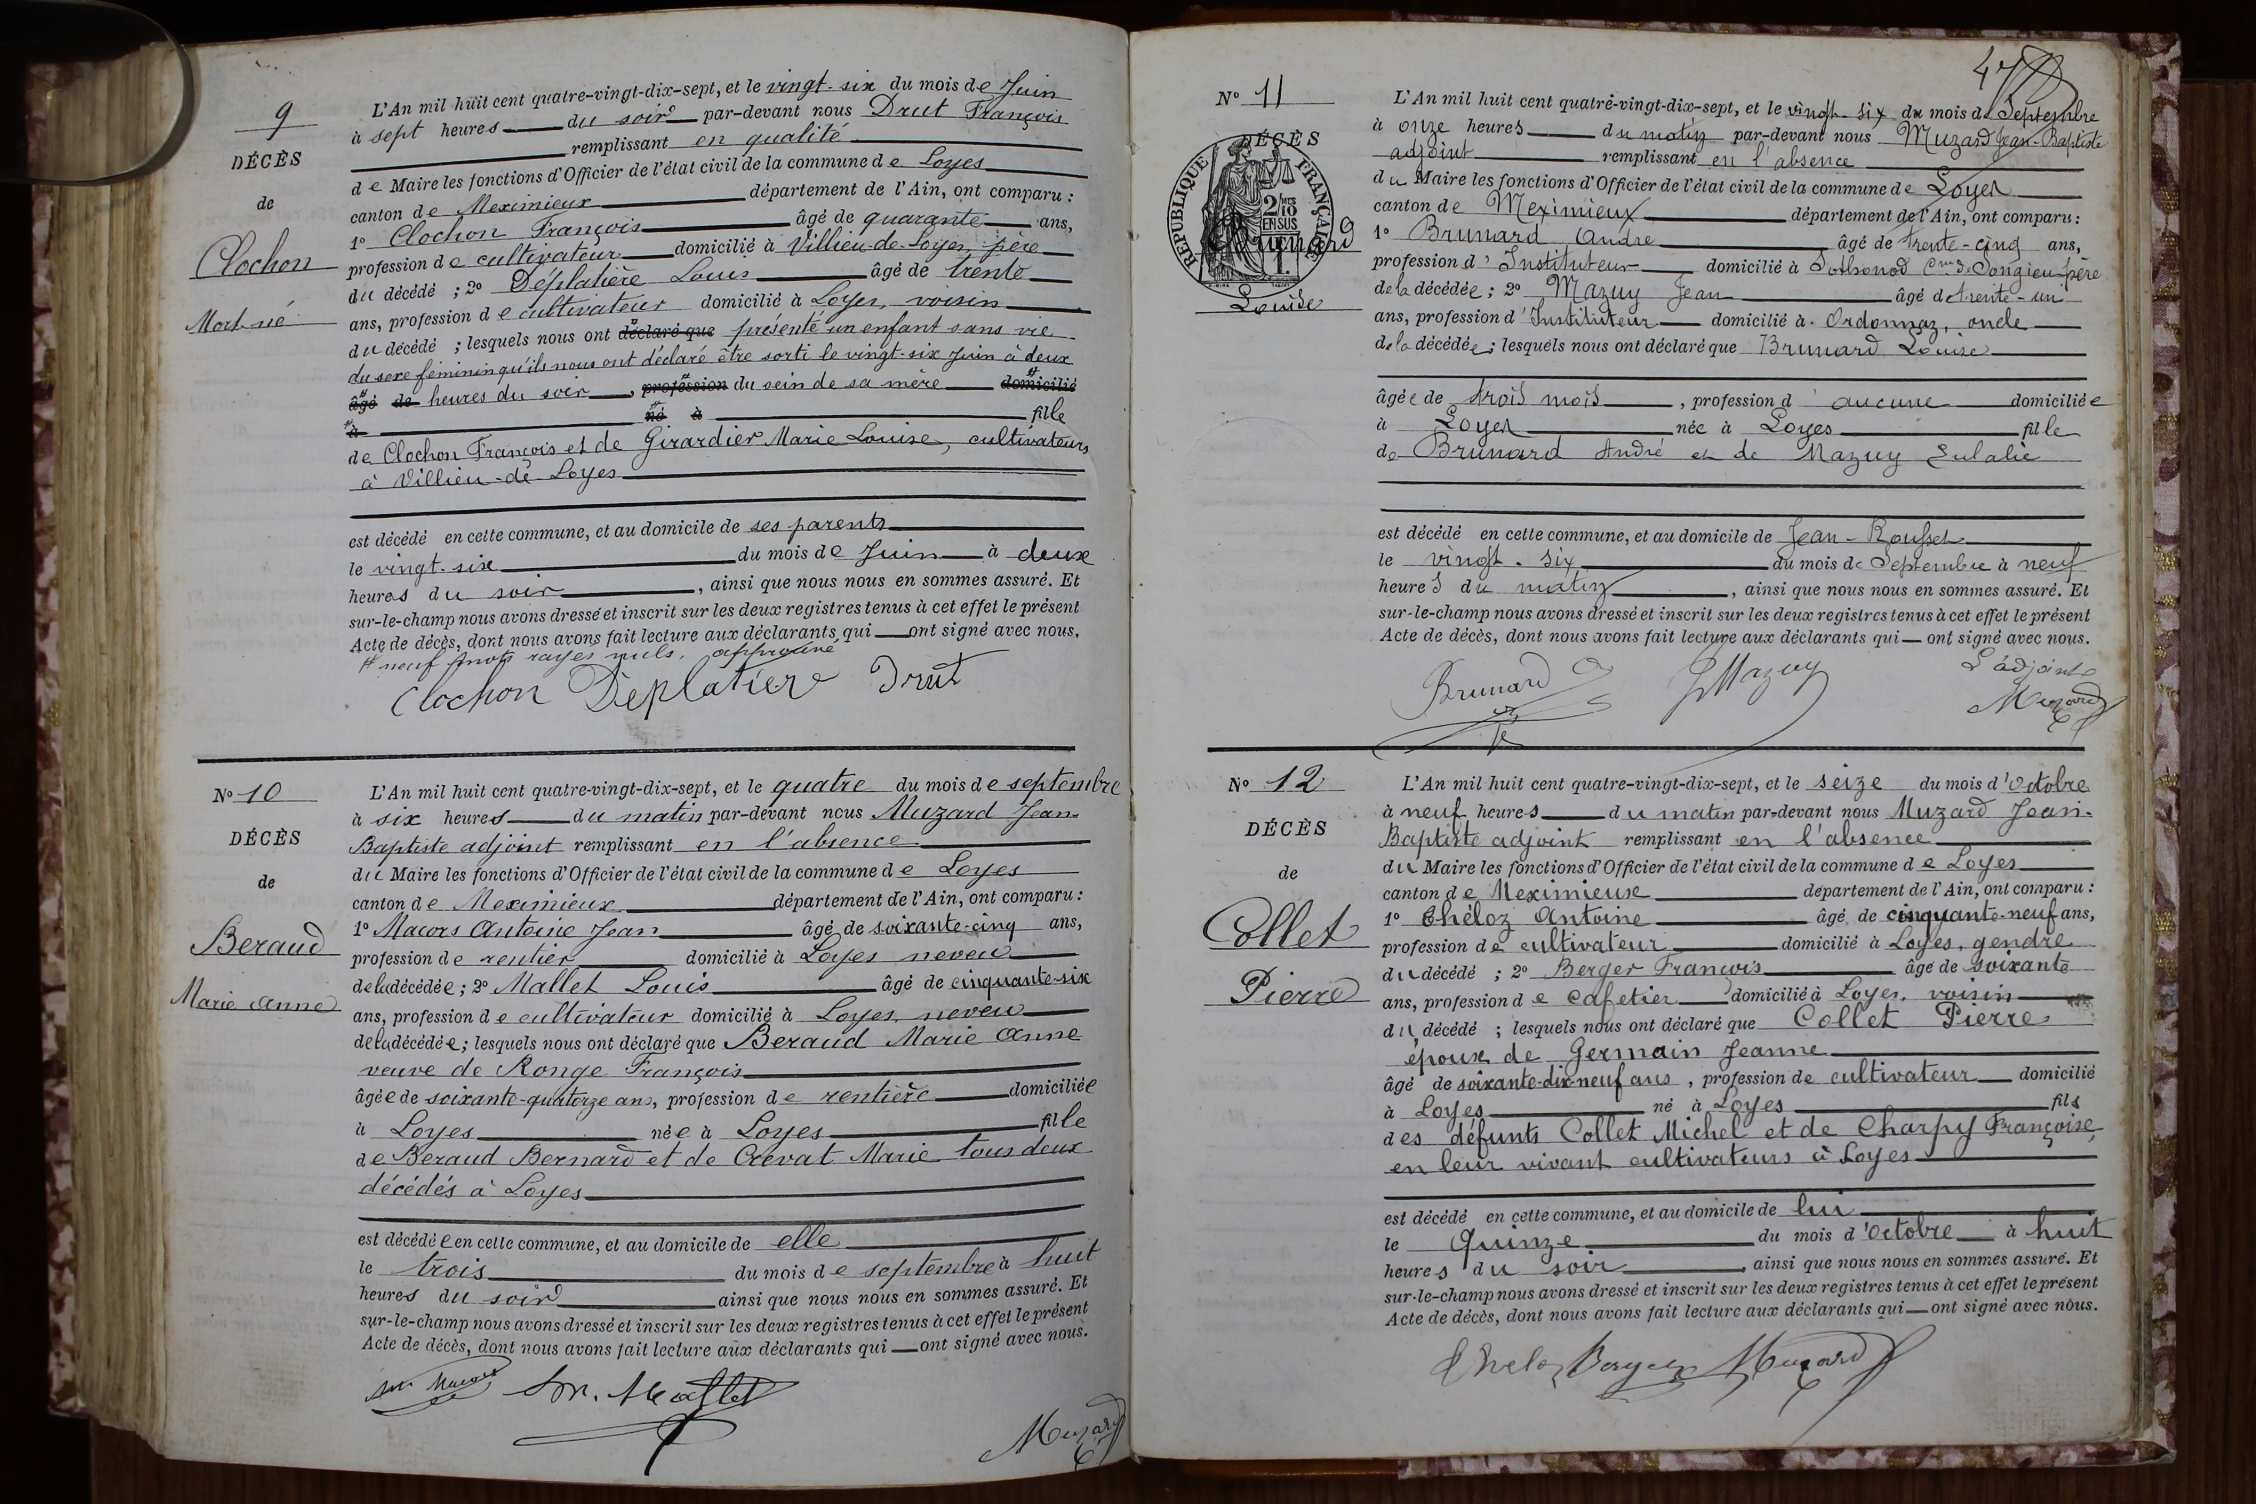 9
DÉCÈS
de
Clochon
Mort-né
L'An mil huit cent quatre-vingt-dix-sept, et le vingt-six du mois de Juin
à sept heures du soir par-devant nous Drut François
remplissant en qualité
de Maire les fonctions d'Officier de l'état civil de la commune de Loyes
canton de Meximieux département de l'Ain, ont comparu :
1º Clochon François âgé de quarante ans,
profession de cultivateur domicilié à Villieu-de-Loyes, père
du décédé ; 2º Déplatière Louis âgé de trente
ans, profession de cultivateur domicilié à Loyes, voisin
du décédé ; lesquels nous ont déclaré que présenté un enfant sans vie
du sexe féminin qu'ils nous ont déclaré être sorti le vingt-six Juin à deux
âgé de heures du soir, profession du sein de sa mère domicilié
à né à fille
de Clochon François et de Girardier Marie Louise, cultivateurs
à Villieu-de-Loyes
est décédé en cette commune, et au domicile de ses parents
le vingt-six du mois de Juin à deux
heures du soir, ainsi que nous nous en sommes assuré. Et
sur-le-champ nous avons dressé et inscrit sur les deux registres tenus à cet effet le présent
Acte de décès, dont nous avons fait lecture aux déclarants qui ont signé avec nous.
# neuf mots rayés nuls. approuvé
Clochon Déplatière Drut
Nº 10
DÉCÈS
de
Beraud
Marie Anne
L'An mil huit cent quatre-vingt-dix-sept, et le quatre du mois de septembre
à six heures du matin par-devant nous Muzard Jean-
Baptiste adjoint remplissant en l'absence
du Maire les fonctions d'Officier de l'état civil de la commune de Loyes
canton de Meximieux département de l'Ain, ont comparu :
1º Macors Antoine Jean âgé de soixante-cinq ans,
profession de rentier domicilié à Loyes neveu
de la décédée ; 2º Mallet Louis âgé de cinquante-six
ans, profession de cultivateur domicilié à Loyes, neveu
de la décédée ; lesquels nous ont déclaré que Beraud Marie Anne
veuve de Ronge François
âgée de soixante-quatorze ans, profession de rentière domiciliée
à Loyes née à Loyes fille
de Beraud Bernard et de Crevat Marie tous deux
décédés à Loyes
est décédée en cette commune, et au domicile de elle
le trois du mois de septembre à huit
heures du soir ainsi que nous nous en sommes assuré. Et
sur-le-champ nous avons dressé et inscrit sur les deux registres tenus à cet effet le présent
Acte de décès, dont nous avons fait lecture aux déclarants qui ont signé avec nous.
Mallet
Muzard
47
Nº 11
DÉCÈS
RÉPUBLIQUE FRANÇAISE
2/10
EN SUS
Brunard
Louise
L'An mil huit cent quatre-vingt-dix-sept, et le vingt-six du mois de Septembre
à onze heures du matin par-devant nous Muzard Jean-Baptiste
adjoint remplissant en l'absence
du Maire les fonctions d'Officier de l'état civil de la commune de Loyes
canton de Meximieux département de l'Ain, ont comparu :
1º Brunard André âgé de trente-cinq ans,
profession d'Instituteur domicilié à Sothonod Cne de Songieu, père
de la décédée ; 2º Mazuy Jean âgé de trente-un
ans, profession d'Instituteur domicilié à Ordonnaz, oncle
de la décédée ; lesquels nous ont déclaré que Brunard Louise
âgée de trois mois, profession d aucune domiciliée
à Loyes née à Loyes fille
de Brunard André et de Mazuy Eulalie
est décédé en cette commune, et au domicile de Jean-Rousset
le vingt-six du mois de Septembre à neuf
heures du matin, ainsi que nous nous en sommes assuré. Et
sur-le-champ nous avons dressé et inscrit sur les deux registres tenus à cet effet le présent
Acte de décès, dont nous avons fait lecture aux déclarants qui ont signé avec nous.
L'adjoint
Brunard JMazuy Muzard
Nº 12
DÉCÈS
de
Collet
Pierre
L'An mil huit cent quatre-vingt-dix-sept, et le seize du mois d'Octobre
à neuf heures du matin par-devant nous Muzard Jean-
Baptiste adjoint remplissant en l'absence
du Maire les fonctions d'Officier de l'état civil de la commune de Loyes
canton de Meximieux département de l'Ain, ont comparu :
1º Chéloz Antoine âgé de cinquante-neuf ans,
profession de cultivateur domicilié à Loyes, gendre
du décédé ; 2º Berger François âgé de soixante
ans, profession de cafetier domicilié à Loyes, voisin
du décédé ; lesquels nous ont déclaré que Collet Pierre
époux de Germain Jeanne
âgé de soixante-dix-neuf ans, profession de cultivateur domicilié
à Loyes né à Loyes fils
des défunts Collet Michel et de Charpy Françoise,
en leur vivant cultivateurs à Loyes
est décédé en cette commune, et au domicile de lui
le quinze du mois d'Octobre à huit
heures du soir, ainsi que nous nous en sommes assuré. Et
sur-le-champ nous avons dressé et inscrit sur les deux registres tenus à cet effet le présent
Acte de décès, dont nous avons fait lecture aux déclarants qui ont signé avec nous.
Cheloz Berger Muzard